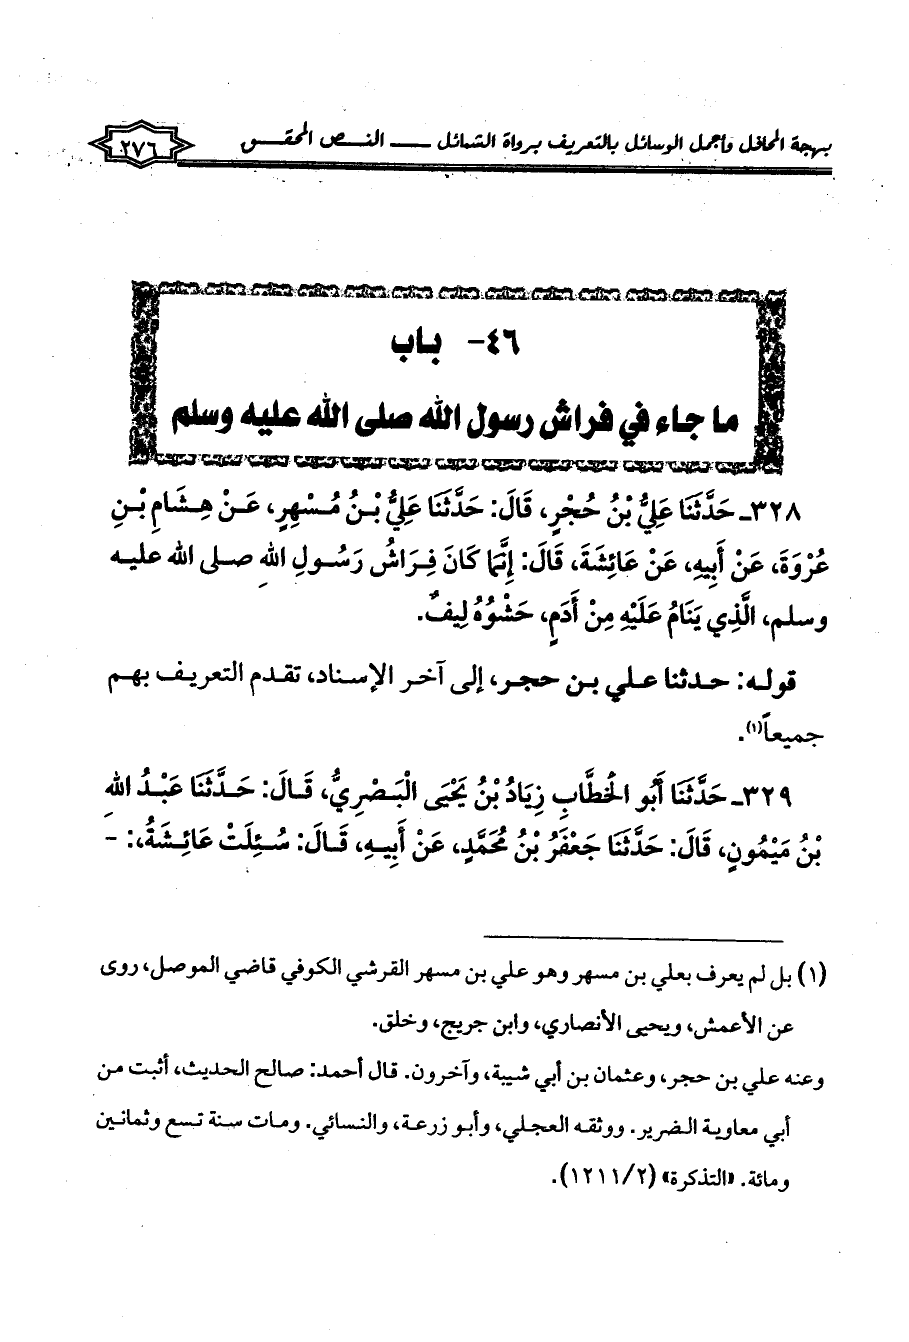 بهجة المحافل وأجمل الوسائل بالتعريف برواة الشمائل ــــ النص المحقق
٢٧٦
٤٦- باب
ما جاء في فراش رسول الله صلى الله عليه وسلم
٣٢٨ـ حَدَّثَنَا عَلِيُّ بْنُ حُجْرٍ، قَالَ: حَدَّثَنَا عَلِيُّ بْنُ مُسْهِرٍ، عَنْ هِشَامِ بْنِ
عُرْوَةَ، عَنْ أَبِيهِ، عَنْ عَائِشَةَ، قَالَ: إِنَّمَا كَانَ فِرَاشُ رَسُولِ اللهِ صلى الله عليه
وسلم، الَّذِي يَنَامُ عَلَيْهِ مِنْ أَدَمٍ، حَشْوُهُ لِيفٌ.
قوله: حدثنا علي بن حجر، إلى آخر الإسناد، تقدم التعريف بهم
جميعاً(١).
٣٢٩ـ حَدَّثَنَا أَبُو الخَطَّابِ زِيَادُ بْنُ يَحْيَى الْبَصْرِيُّ، قَالَ: حَدَّثَنَا عَبْدُ اللهِ
بْنُ مَيْمُونٍ، قَالَ: حَدَّثَنَا جَعْفَرُ بْنُ مُحَمَّدٍ، عَنْ أَبِيهِ، قَالَ: سُئِلَتْ عَائِشَةُ،: -
(١) بل لم يعرف بعلي بن مسهر وهو علي بن مسهر القرشي الكوفي قاضي الموصل، روى
عن الأعمش، ويحيى الأنصاري، وابن جريج، وخلق.
وعنه علي بن حجر، وعثمان بن أبي شيبة، وآخرون. قال أحمد: صالح الحديث، أثبت من
أبي معاوية الضرير. ووثقه العجلي، وأبو زرعة، والنسائي. ومات سنة تسع وثمانين
ومائة. «التذكرة» (١٢١١/٢).